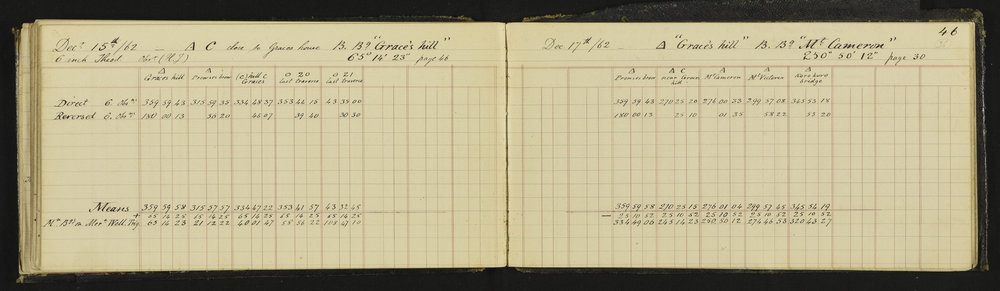 Decr 15th/62 — Δ C close to Graces house B. Bg "Grace's hill"
6 inch Theot Obsr (H.J) 65° 14' 23" page 46
Δ Graces hill Δ Promise brow (o) hill C Graces O 20 last traverse O 21 last traverse
Direct 6. Obns 359 59 43 315 59 35 334 48 37 353 44 15 43 35 00
Reversed 6. Obns 180 00 13 36 20 46 07 39 40 30 30
Means 359 59 58 315 37 57 334 47 22 353 41 57 43 32 45
+ 65 14 25 65 14 25 65 14 25 65 14 25
Mn Bgs in Mern Well. Trig. 65 14 23 21 12 22 40 01 47 58 56 22 108 47 10
46
Dec 17th/62 — Δ "Grace's hill" B. Bg "Mt Cameron"
250° 50' 12" page 30
Δ Promise brow Δ C near Graces Mt Cameron Mt Victoria bridge
359 59 43 270 25 20 276 00 33 299 57 08 345 55 18
180 00 13 25 10 01 35 58 22 53 20
359 59 58 270 25 15 276 01 04 299 57 45 345 54 19
— 25 10 52 25 10 52 25 10 52 25 10 52 25 10 52
334 49 06 245 14 23 250 50 12 274 46 53 320 43 27